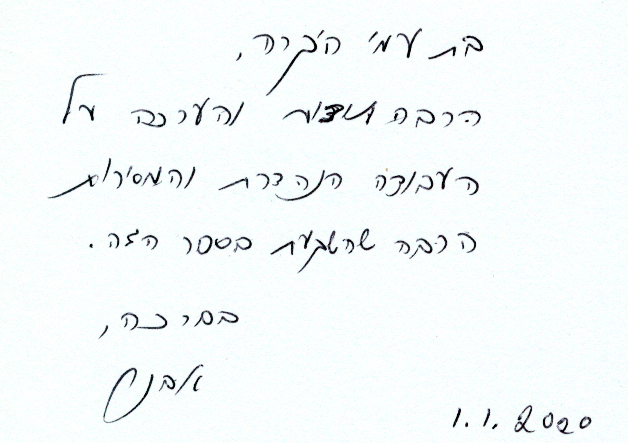 בת עמי היקרה,
הרבה תודות והערכה על
העבודה הנהדרת והמסירות
הרבה שהשקעת בספר הזה.
בברכה,
אבנר
1.1.2020